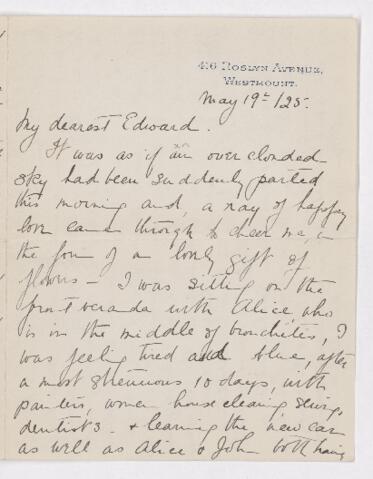 416 ROSLYN AVENUE,
WESTMOUNT.
May 19th/25.
My dearest Edward.
It was as if an over clouded
sky had been suddenly parted
this morning and, a ray of happy
love came through to cheer me, in
the form of a lovely gift of
flowers — I was sitting on the
front veranda with Alice, who
is in the middle of bronchitis, I
was feeling tired and blue, after
a most strenuous 10 days, with
painters, women house cleaning sewing,
dentists. & learning the new car
as well as Alice & John both having